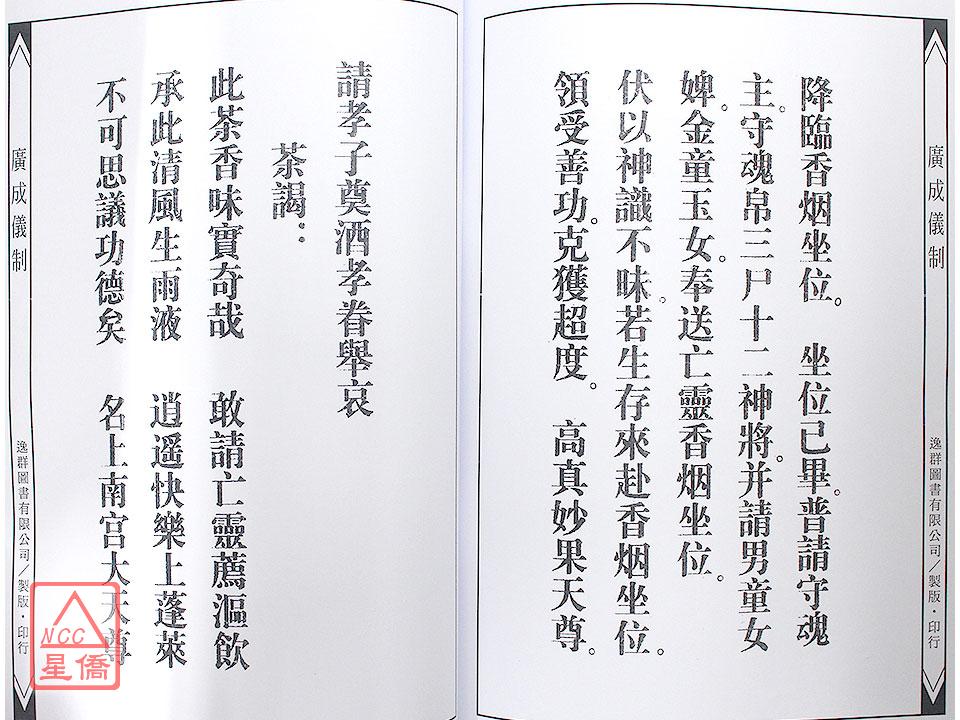 廣成儀制
逸群圖書有限公司／製版・印行
降臨香烟坐位。 坐位已畢。普請守魂
主。守魂帛三尸十二神將。并請男童女
婢。金童玉女。奉送亡靈香烟坐位。
伏以神識不昧。若生存來赴香烟坐位。
領受善功。克獲超度。 高真妙果天尊。
請孝子奠酒孝眷舉哀
茶謁：
此茶香味實奇哉 敢請亡靈薦漚飲
承此清風生雨液 逍遥快樂上蓬萊
不可思議功德矣 名上南宫大天尊
廣成儀制
逸群圖書有限公司／製版・印行
NCC
星僑